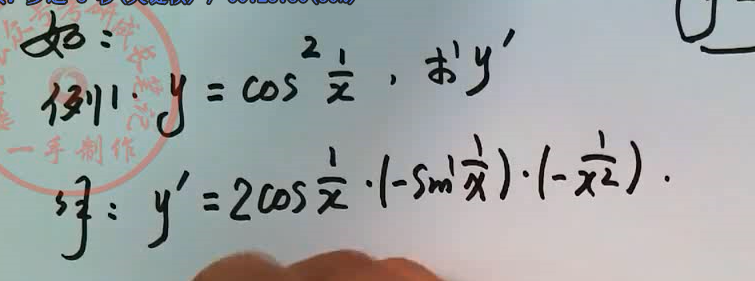 如：
例1. y = cos² 1/x , 求y′
解: y′ = 2cos 1/x · (-sin 1/x) · (-1/x²).
一手制作